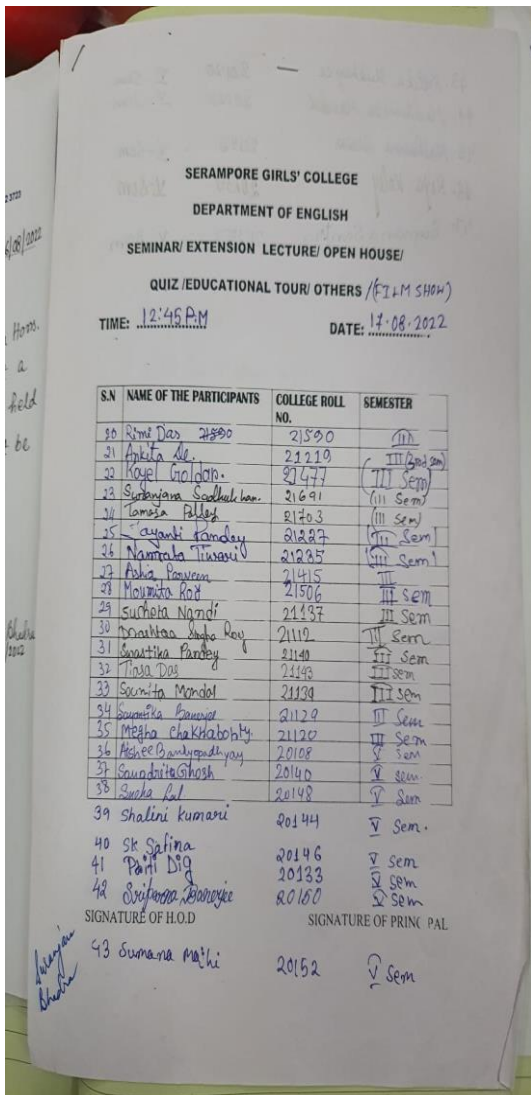 SERAMPORE GIRLS' COLLEGE
DEPARTMENT OF ENGLISH
SEMINAR/ EXTENSION LECTURE/ OPEN HOUSE/
QUIZ /EDUCATIONAL TOUR/ OTHERS /(FILM SHOW)
TIME: 12:45 P.M DATE: 17.08.2022
S.N NAME OF THE PARTICIPANTS COLLEGE ROLL NO. SEMESTER
20 Rimi Das 21590 III
21 Ankita De. 21219 III (3rd sem)
22 Koyel Goldar. 21477 (III Sem)
23 21691 (III Sem)
24 Tamasa 21703 (III sem)
25 Jayanti Pandey 21227 (III Sem)
26 Namrata Tiwari 21235 (III Sem)
27 Asha Parveen 21415 III
28 Moumita Roy 21506 III sem
29 Sucheta Nandi 21137 III Sem
30 Roy 21112 III Sem
31 Swastika Pandey 21140 III Sem
32 Tiasa Das 21143 III sem
33 Soumita Mondal 21139 III sem
34 Banerjee 21129 III Sem
35 Megha Chakraborty 21120 III Sem
36 Aishee Bandyopadhyay 20108 V Sem
37 Soumdrita Ghosh 20140 V sem.
38 Sneha Lal 20148 V Sem
39 Shalini Kumari 20144 V Sem.
40 SK Safina 20146 V sem
41 Paiti Dig 20133 V Sem
42 Sriparna Banerjee 20160 V Sem
SIGNATURE OF H.O.D SIGNATURE OF PRINC PAL
43 Sumana Maihi 20152 V Sem
Suranjana
Bhadra